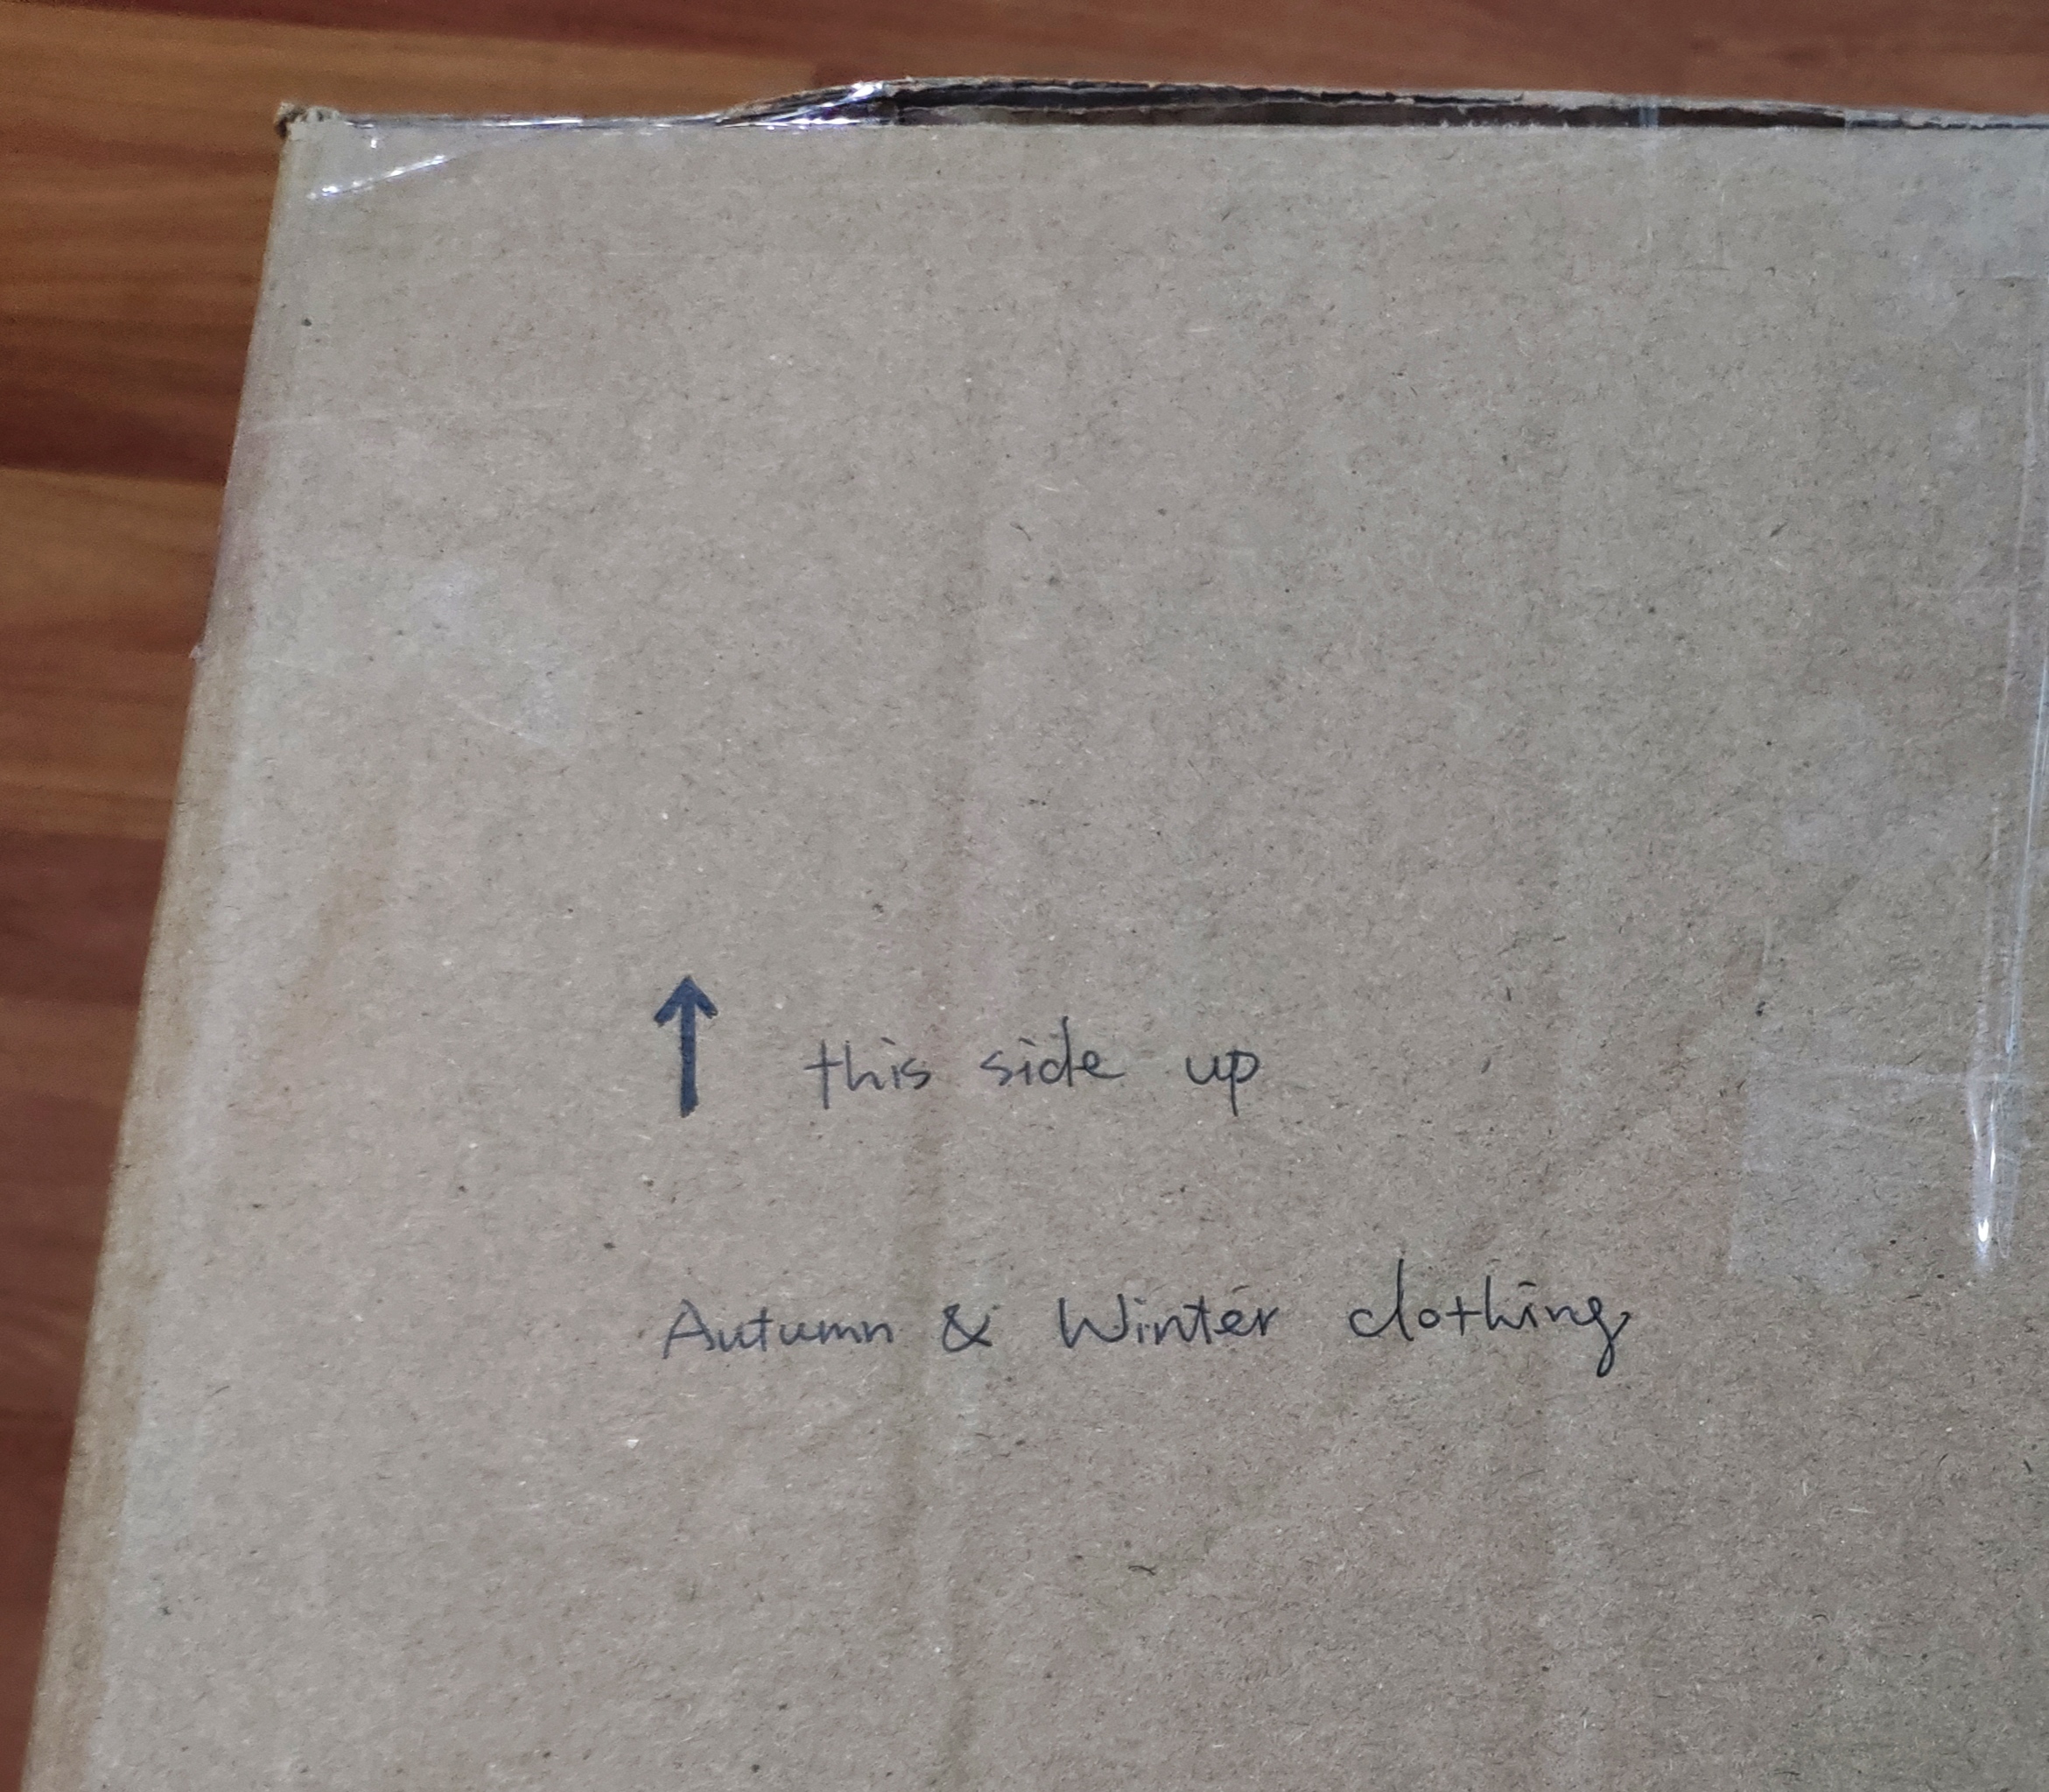 ↑ this side up
Autumn & Winter clothing